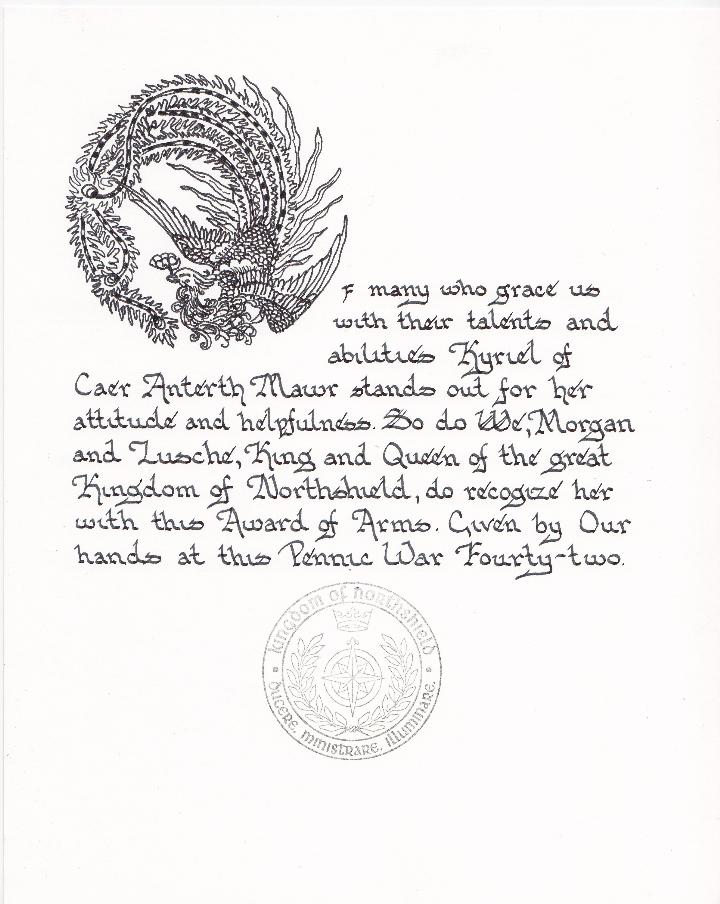 f many who grace us
with their talents and
abilities Kyriel of
Caer Anterth Mawr stands out for her
attitude and helpfulness. So do We, Morgan
and Lusche, King and Queen of the great
Kingdom of Northshield, do recogize her
with this Award of Arms. Given by Our
hands at this Pennic War Fourty-two.
kingdom of northshield
ducere, ministrare, illuminare.